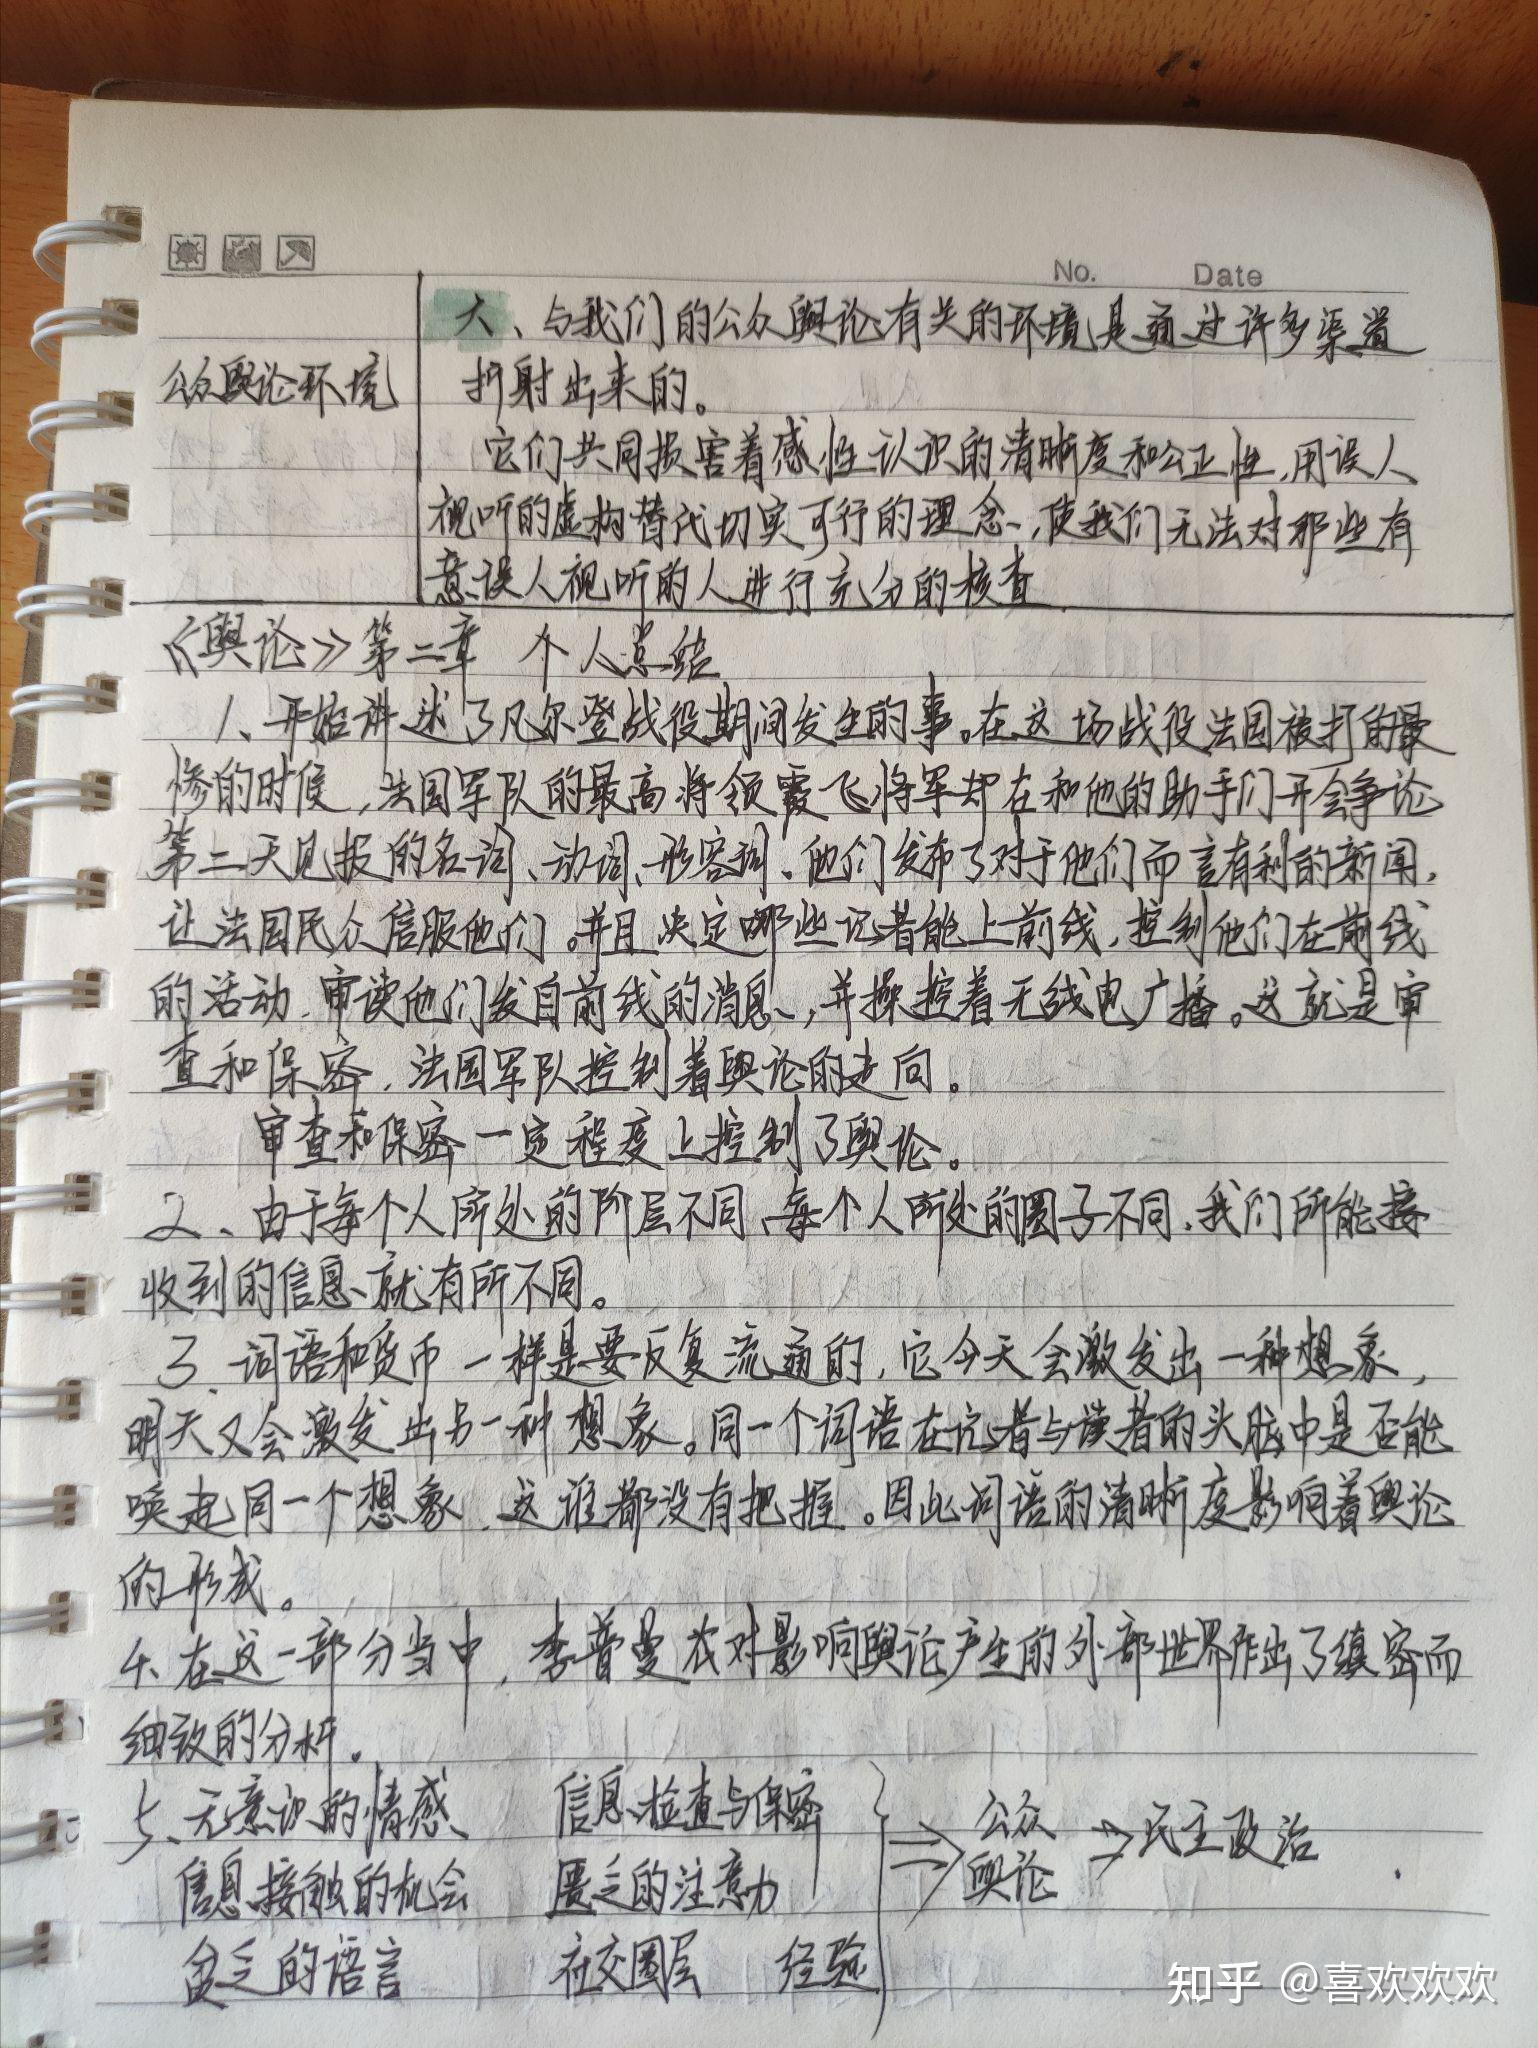 No. Date
六、与我们的公众舆论有关的环境是通过许多渠道
公众舆论环境
折射出来的。
它们共同损害着感性认识的清晰度和公正性,用误人
视听的虚构替代切实可行的理念,使我们无法对那些有
意误人视听的人进行充分的核查.
《舆论》第二章 个人总结
1、开始讲述了凡尔登战役期间发生的事。在这场战役法国被打的最
惨的时候,法国军队的最高将领霞飞将军却在和他的助手们开会争论
第二天见报的名词、动词、形容词。他们发布了对于他们而言有利的新闻,
让法国民众信服他们。并且决定哪些记者能上前线,控制他们在前线
的活动,审读他们发自前线的消息,并操控着无线电广播。这就是审
查和保密,法国军队控制着舆论的走向。
审查和保密一定程度上控制了舆论。
2、由于每个人所处的阶层不同、每个人所处的圈子不同,我们所能接
收到的信息就有所不同。
3、词语和货币一样是要反复流通的,它今天会激发出一种想象,
明天又会激发出另一种想象。同一个词语在记者与读者的头脑中是否能
唤起同一个想象,这谁都没有把握。因此词语的清晰度影响着舆论
的形成。
4、在这一部分当中,李普曼在对影响舆论产生的外部世界作出了缜密而
细致的分析。
5、无意识的情感 信息检查与保密
信息接触的机会 匮乏的注意力
贫乏的语言 社交圈层 经验
⇒ 公众
舆论
⇒ 民主政治
知乎 @喜欢欢欢